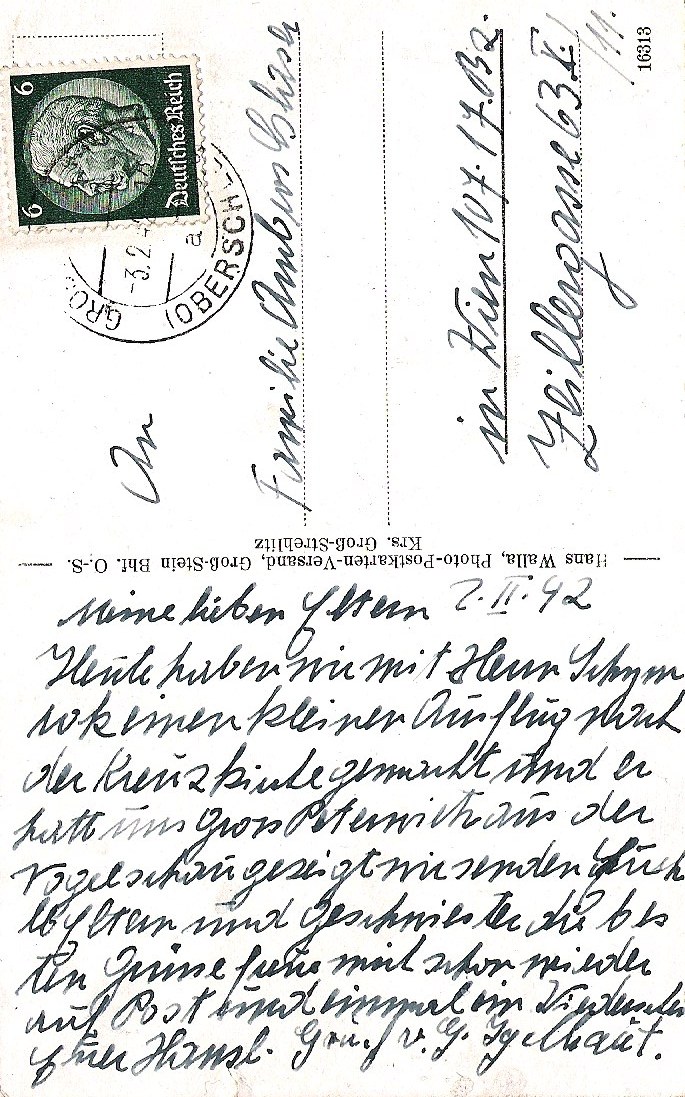 6 Deutsches Reich 6
GRO
-3.2.4
a
(OBERSCHL
An
Familie Ambros
in Wien 107. 17. B2.
Zeillergasse 63 X./
/11.
16313
Hans Walla, Photo-Postkarten-Versand, Groß-Stein Bhf. O.-S.
Krs. Groß-Strehlitz
Meine lieben Eltern 2.II.42
Heute haben wir mit Herrn Schym
rok einen kleinen Ausflug nach
der Kreuzkirche gemacht und er
hatt uns Gross Peterwitz aus der
Vogelschau gezeigt wir senden Euch
lb Eltern und Geschwister die bes
ten Grüsse freue mich schon wieder
auf Post und einmal ein Wiedersehen
Euer Hansl. v. G. Igelhaut.